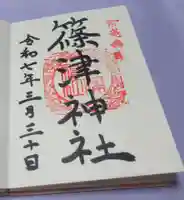 篠津神社
令和七年三月三十日